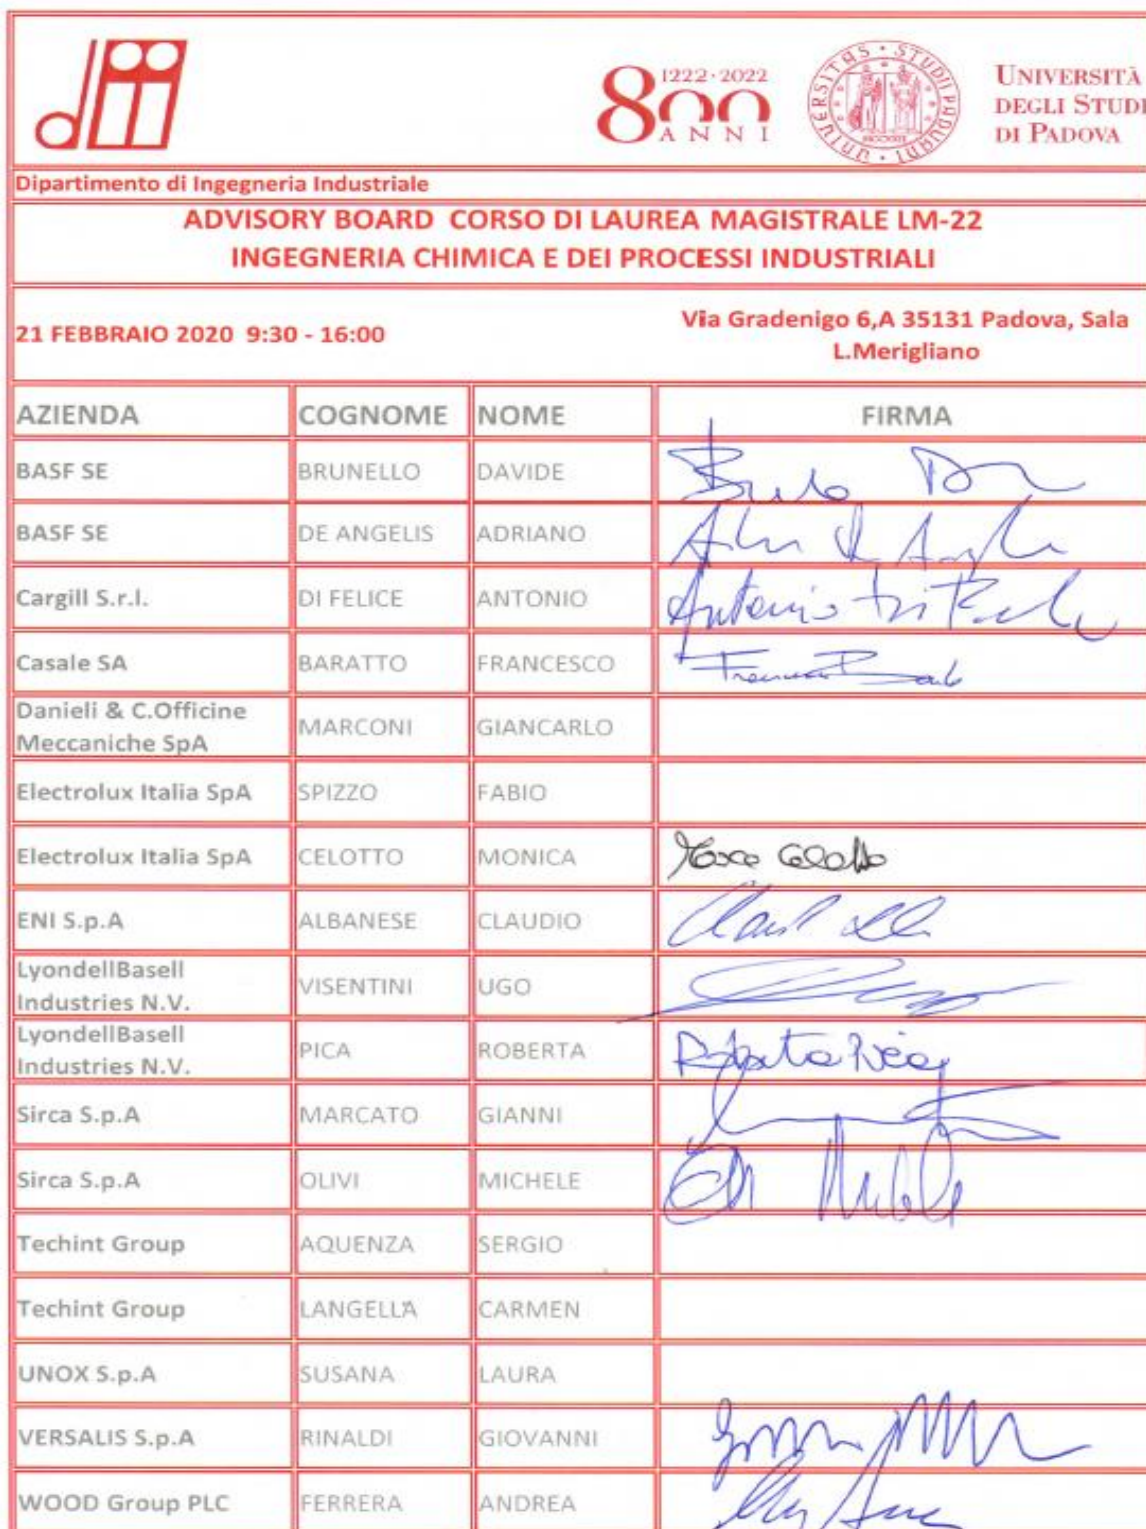 dii
1222·2022
800
ANNI
UNIVERSITAS · STUDII PADUANI ·
UNIVERSITÀ
DEGLI STUDI
DI PADOVA
Dipartimento di Ingegneria Industriale
ADVISORY BOARD CORSO DI LAUREA MAGISTRALE LM-22
INGEGNERIA CHIMICA E DEI PROCESSI INDUSTRIALI
21 FEBBRAIO 2020 9:30 - 16:00
Via Gradenigo 6,A 35131 Padova, Sala
L.Merigliano
AZIENDA COGNOME NOME FIRMA
BASF SE BRUNELLO DAVIDE
BASF SE DE ANGELIS ADRIANO
Cargill S.r.l. DI FELICE ANTONIO Antonio
Casale SA BARATTO FRANCESCO
Danieli & C.Officine
Meccaniche SpA MARCONI GIANCARLO
Electrolux Italia SpA SPIZZO FABIO
Electrolux Italia SpA CELOTTO MONICA
ENI S.p.A ALBANESE CLAUDIO
LyondellBasell
Industries N.V. VISENTINI UGO
LyondellBasell
Industries N.V. PICA ROBERTA Roberta Pica
Sirca S.p.A MARCATO GIANNI
Sirca S.p.A OLIVI MICHELE
Techint Group AQUENZA SERGIO
Techint Group LANGELLA CARMEN
UNOX S.p.A SUSANA LAURA
VERSALIS S.p.A RINALDI GIOVANNI
WOOD Group PLC FERRERA ANDREA